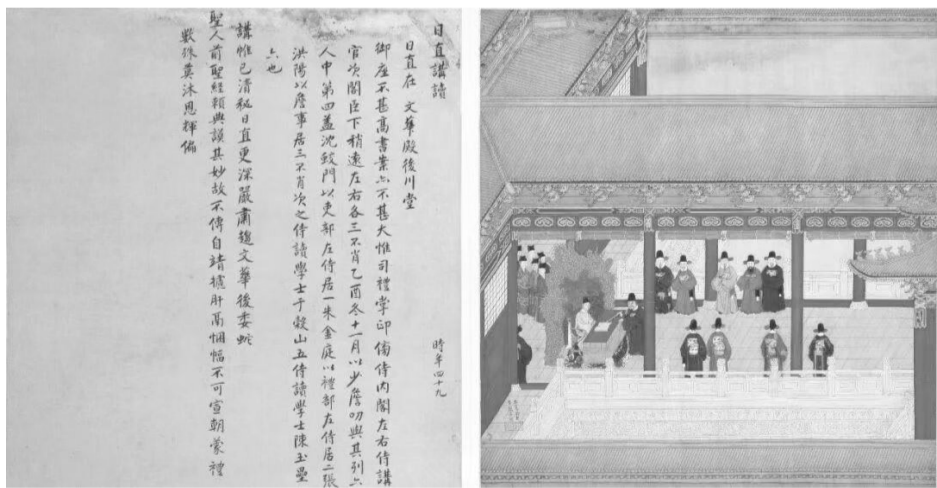 日直講讀
時年四十九
日直在 文華殿後川堂
御座不甚高書案亦不甚大惟司禮掌印偹侍內閣左右侍講
官次閣臣下稍遠左右各三不肖乙酉冬十一月以少詹叨與其列六
人中第四蓋沈蛟門以吏部左侍居一朱金庭以禮部左侍居二張
洪陽以詹事居三不肖次之侍讀學士于穀山五侍讀學士陳玉壘
六也
講帷已清秘日直更深嚴肅趨文華後委蛇
聖人前聖經賴與謨其妙故不傳自靖攄肝鬲悃愊不可宣朝蒙禮
數殊莫沐恩輝偏